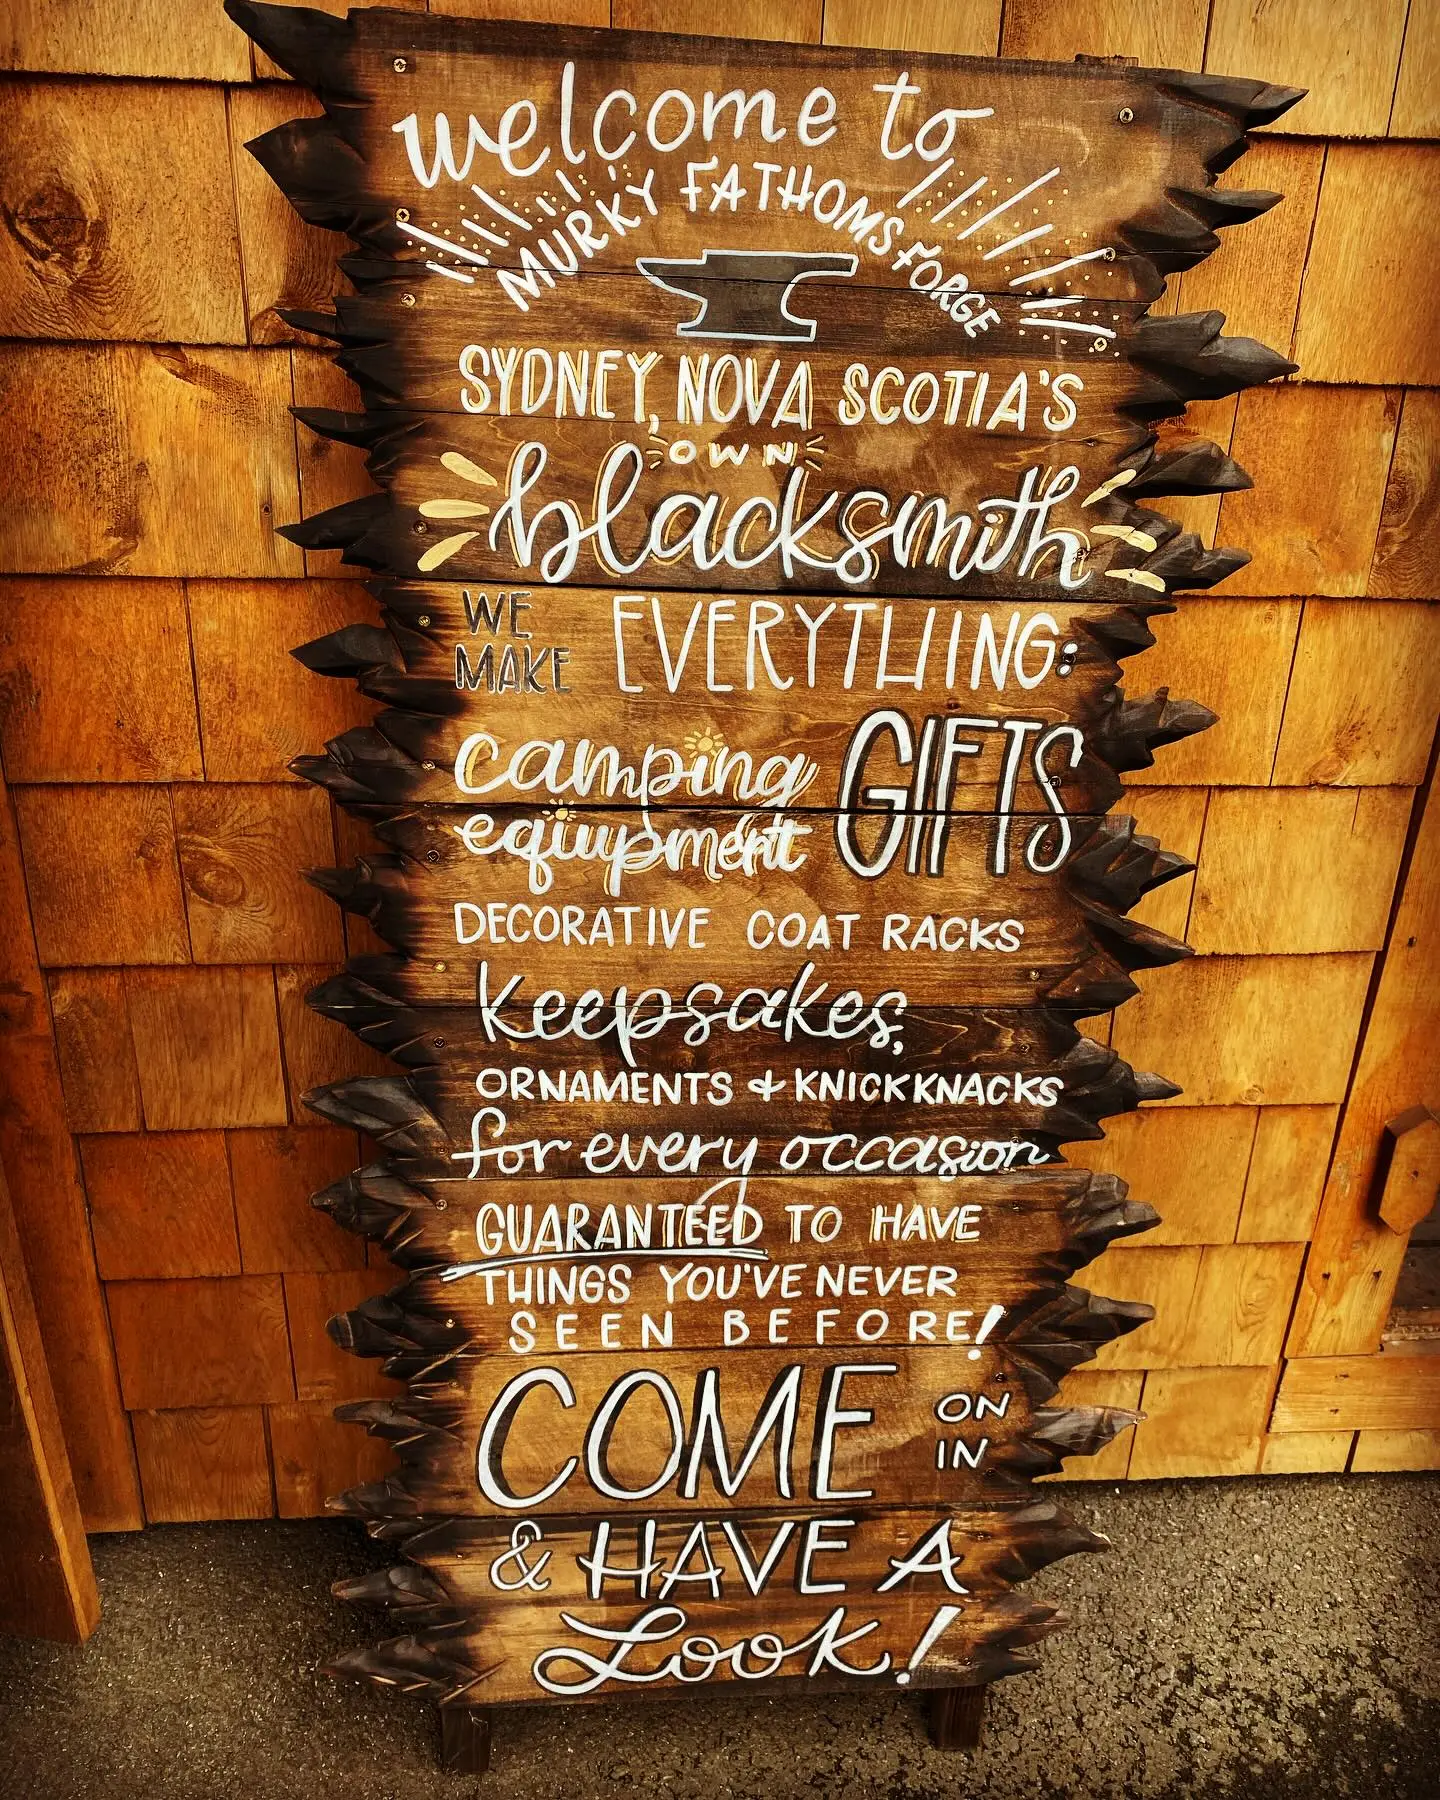 welcome to
MURKY FATHOMS FORGE
SYDNEY, NOVA SCOTIA'S
OWN
blacksmith
WE
MAKE EVERYTHING:
camping
equipment GIFTS
DECORATIVE COAT RACKS
keepsakes,
ORNAMENTS + KNICKKNACKS
for every occasion
GUARANTEED TO HAVE
THINGS YOU'VE NEVER
SEEN BEFORE!
COME ON
IN
& HAVE A
Look!